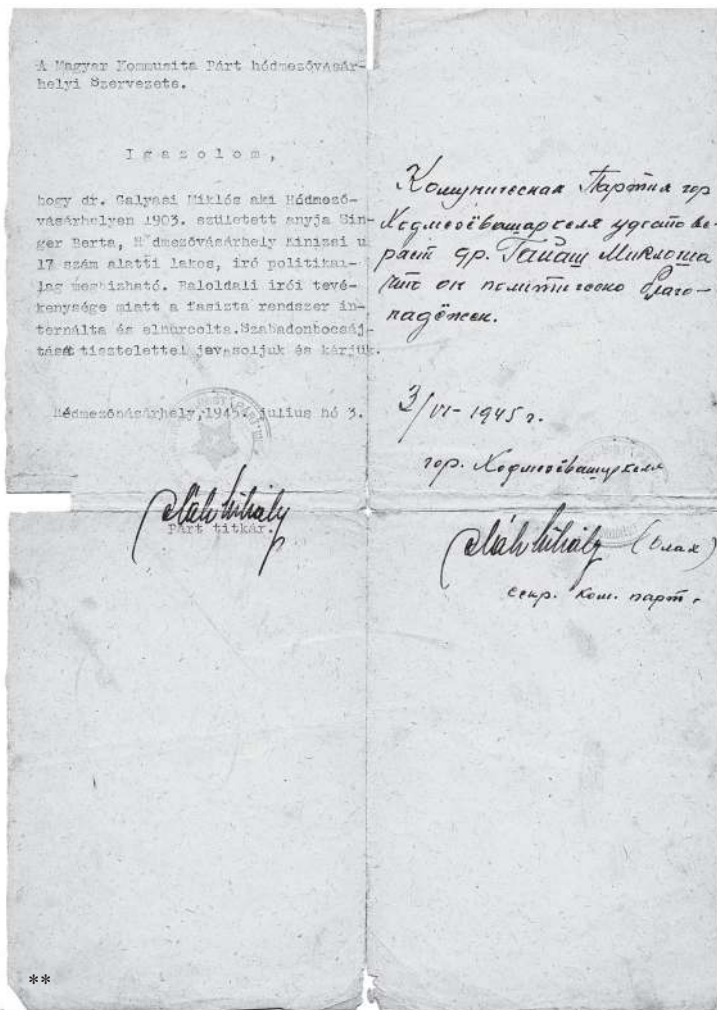 A Magyar Kommusita Párt hódmezővásár-
helyi Szervezete.
Igazolom,
hogy dr. Galyasi Miklós aki Hódmező-
vásárhelyen 1903. született anyja Sin-
ger Berta, Hódmezővásárhely Kinizsi u
17 szám alatti lakos, író politikai-
lag megbizható. Baloldali irói tevé-
kenysége miatt a fasizta rendszer in-
ternálta és elhurcolta.Szabadonbocsáj-
tását tisztelettel javasoljuk és kérjük.
Hódmezőnásárhely,1945. julius hó 3.
Oláh Mihály
Párt titkár.
Комуническая Партия гор
Ходмезёвашаркеля удстове-
раит др. Галиаш Миклоша
что он политическо благо-
надёжен.
3/VI - 1945 г.
гор. Ходмезёвашаркеля
Oláh Mihály (Олах)
секр. ком. парт.
**